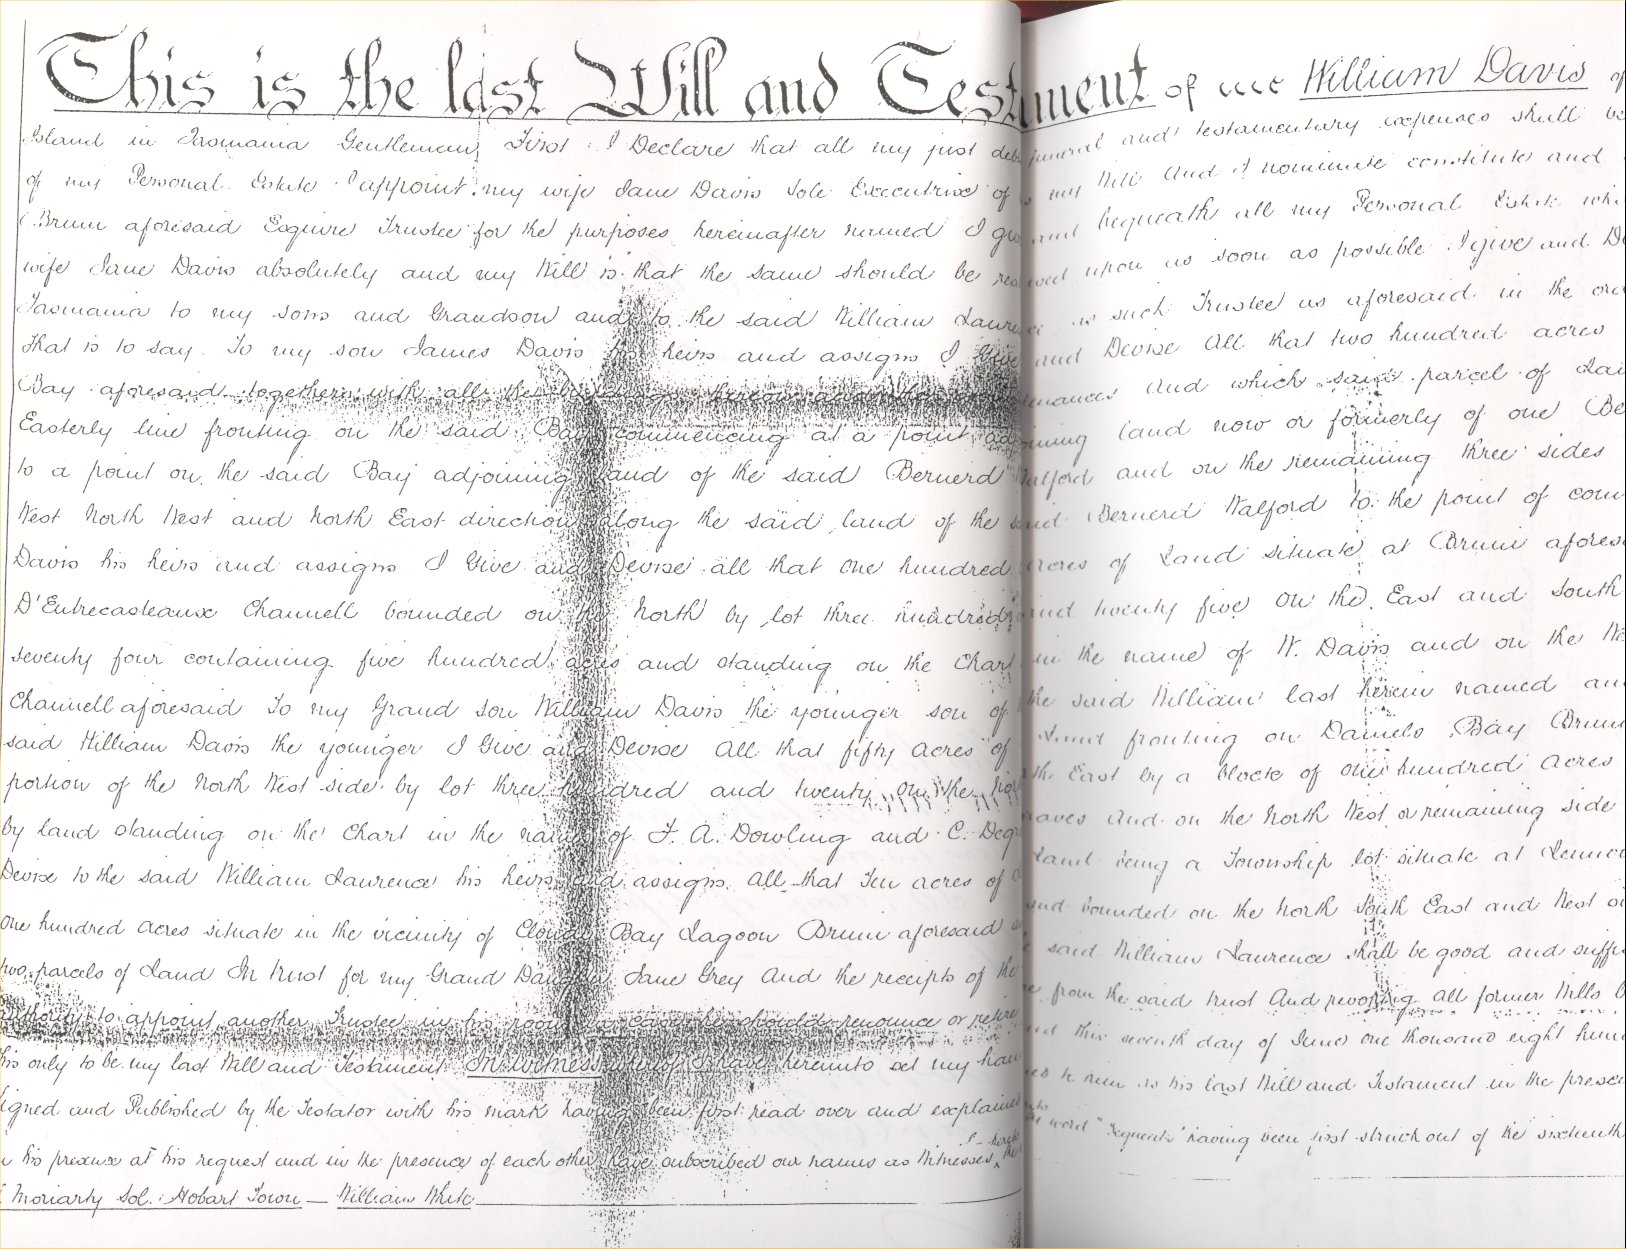 This is the last Will and Testament of me William Davis of
Island in Tasmania Gentleman First I Declare that all my just debts funeral and testamentary expenses shall be
of my Personal Estate I appoint my wife Jane Davis Sole Executrix of my Will And I nominate constitute and
Bruni aforesaid Esquire Trustee for the purposes hereinafter named I give and bequeath all my Personal Estate
wife Jane Davis absolutely and my Will is that the same should be upon as soon as possible I give and
Tasmania to my sons and Grandson and to the said William Laurence as such Trustee as aforesaid in the
that is to say. To my son James Davis his heirs and assigns I Give and Devise all that two hundred acres
Bay aforesaid together with all the buildings thereon And which said parcel of
Easterly line fronting on the said Bay commencing at a point adjoining land now or formerly of one
to a point on the said Bay adjoining land of the said Bernerd Walford and on the remaining three sides
West North West and North East direction along the said land of the said Bernerd Walford to the point of
Davis his heirs and assigns I Give and Devise all that one hundred acres of Land situate at Bruni
D'Entrecasteaux Channell bounded on the North by lot three hundred and twenty five On the East and South
seventy four containing five hundred acres and standing on the Chart in the name of W. Davis and on the
Channell aforesaid To my Grand Son William Davis the younger son of the said William last herein named
said William Davis the younger I Give and Devise all that fifty acres of Land fronting on Daniels Bay
portion of the North West side by lot three hundred and twenty on the East by a block of one hundred acres
by land standing on the Chart in the name of F. A. Dowling and C. And on the North West or remaining side
Devise to the said William Laurence his heirs and assigns all that Ten acres of Land being a Township lot situate at
one hundred acres situate in the vicinity of Cloudy Bay Lagoon Bruni aforesaid and bounded on the North South East and West
two parcels of Land In trust for my Grand Daughter Jane Grey And the receipts of the said William Laurence shall be good and
authority to appoint another Trustee in his room in case he should renounce or retire from the said trust And revoking all former Wills
this only to be my last Will and Testament In witness whereof I have hereunto set my hand this seventh day of June one thousand eight
signed and Published by the Testator with his mark having been first read over and explained to him as his last Will and Testament in the
in his presence at his request and in the presence of each other have subscribed our names as Witnesses the word having been first struck out of the sixteenth
Moriarty Sol. Hobart Town — William White